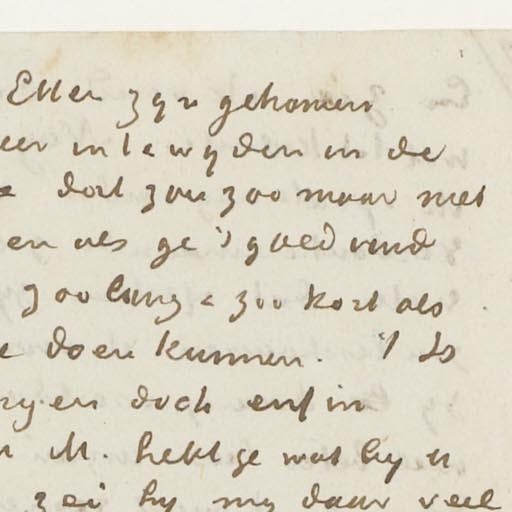 Etten zyn gekomen
eer in te wyden in de
dat zou zoo maar niet
en als ge 't goed vind
zoo lang & zoo kort als
e doen kunnen. 't Is
krygen doch enfin
n M. hebt ge wat by u
zei hy my daar veel